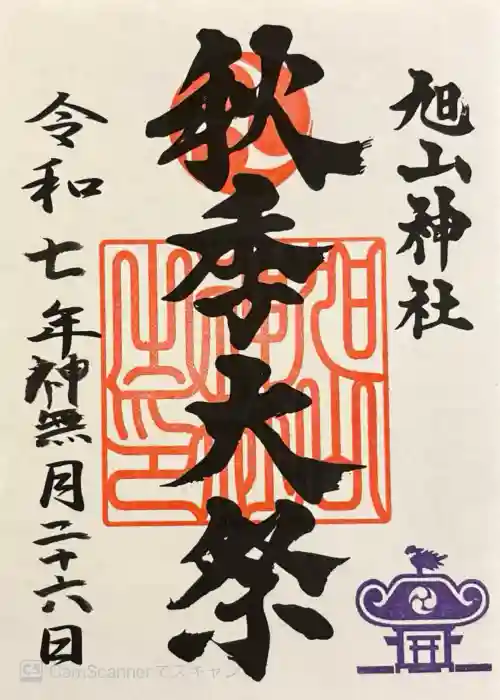 旭山神社
秋季大祭
令和七年神無月二十六日
CamScannerでスキャン